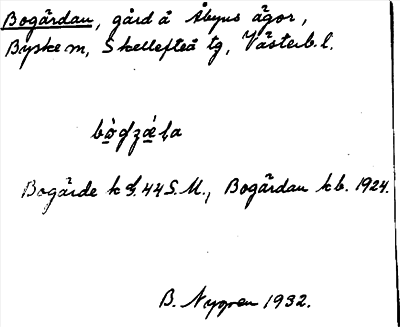 Bogärdan, gård å Åbyns ägor,
Byske sn, Skellefteå tg, Västerb. l.
Bogärde k 44 S.M., Bogärdan kb. 1924.
B. Nygren 1932.